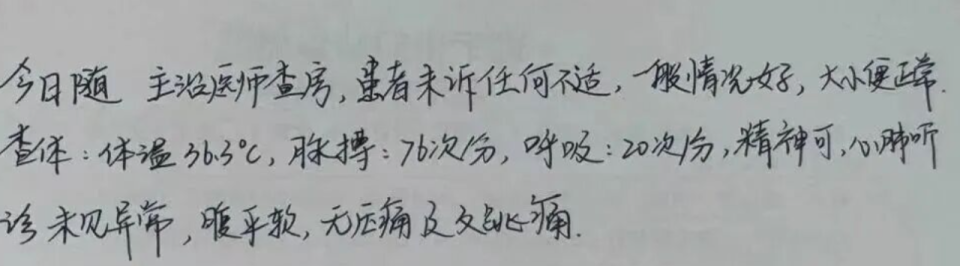 今日随 主治医师查房,患者未诉任何不适,一般情况好,大小便正常.
查体:体温36.3℃,脉搏:76次/分,呼吸:20次/分,精神可,心肺听
诊未见异常,腹平软,无压痛及反跳痛.